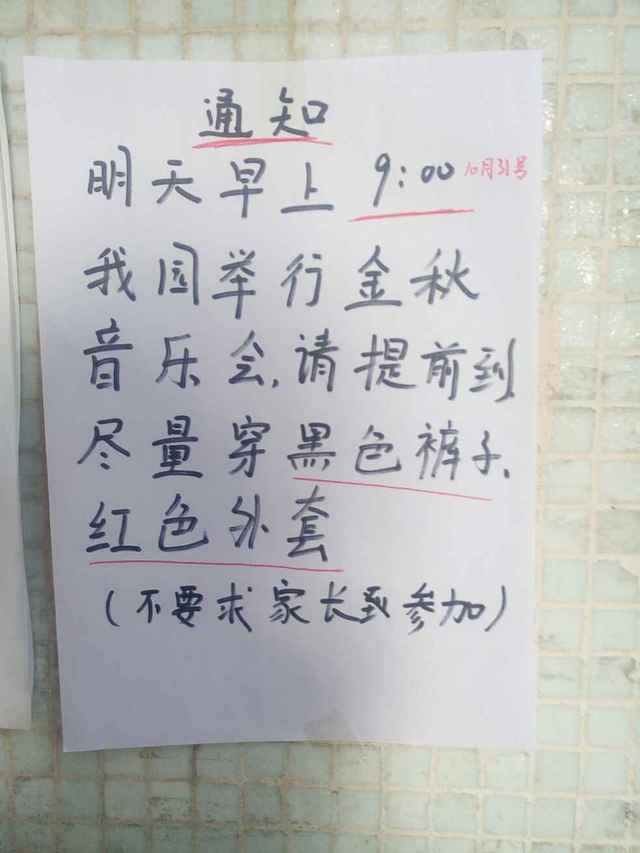 通知
明天早上 9:00 10月31号
我园举行金秋
音乐会,请提前到
尽量穿黑色裤子、
红色外套
(不要求家长到参加)